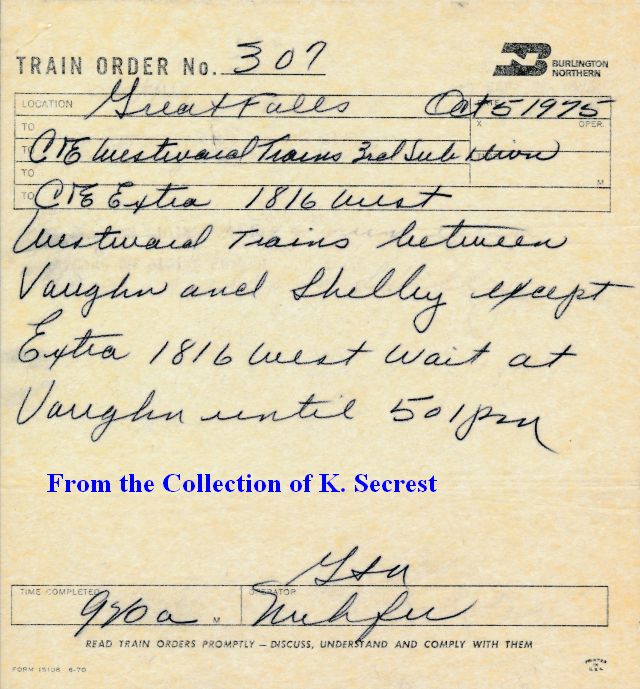 TRAIN ORDER No. 307
BURLINGTON
NORTHERN
LOCATION Great Falls Oct 5 1975
TO X OPER.
TO C&E Westward Trains 3rd Sub Divn
TO M
TO C&E Extra 1816 West
Westward Trains between
Vaughn and Shelby except
Extra 1816 West Wait at
Vaughn until 501pm
From the Collection of K. Secrest
TIME COMPLETED 920a M OPERATOR
READ TRAIN ORDERS PROMPTLY — DISCUSS, UNDERSTAND AND COMPLY WITH THEM
FORM 15108 6-70
PRINTED
IN
U.S.A.